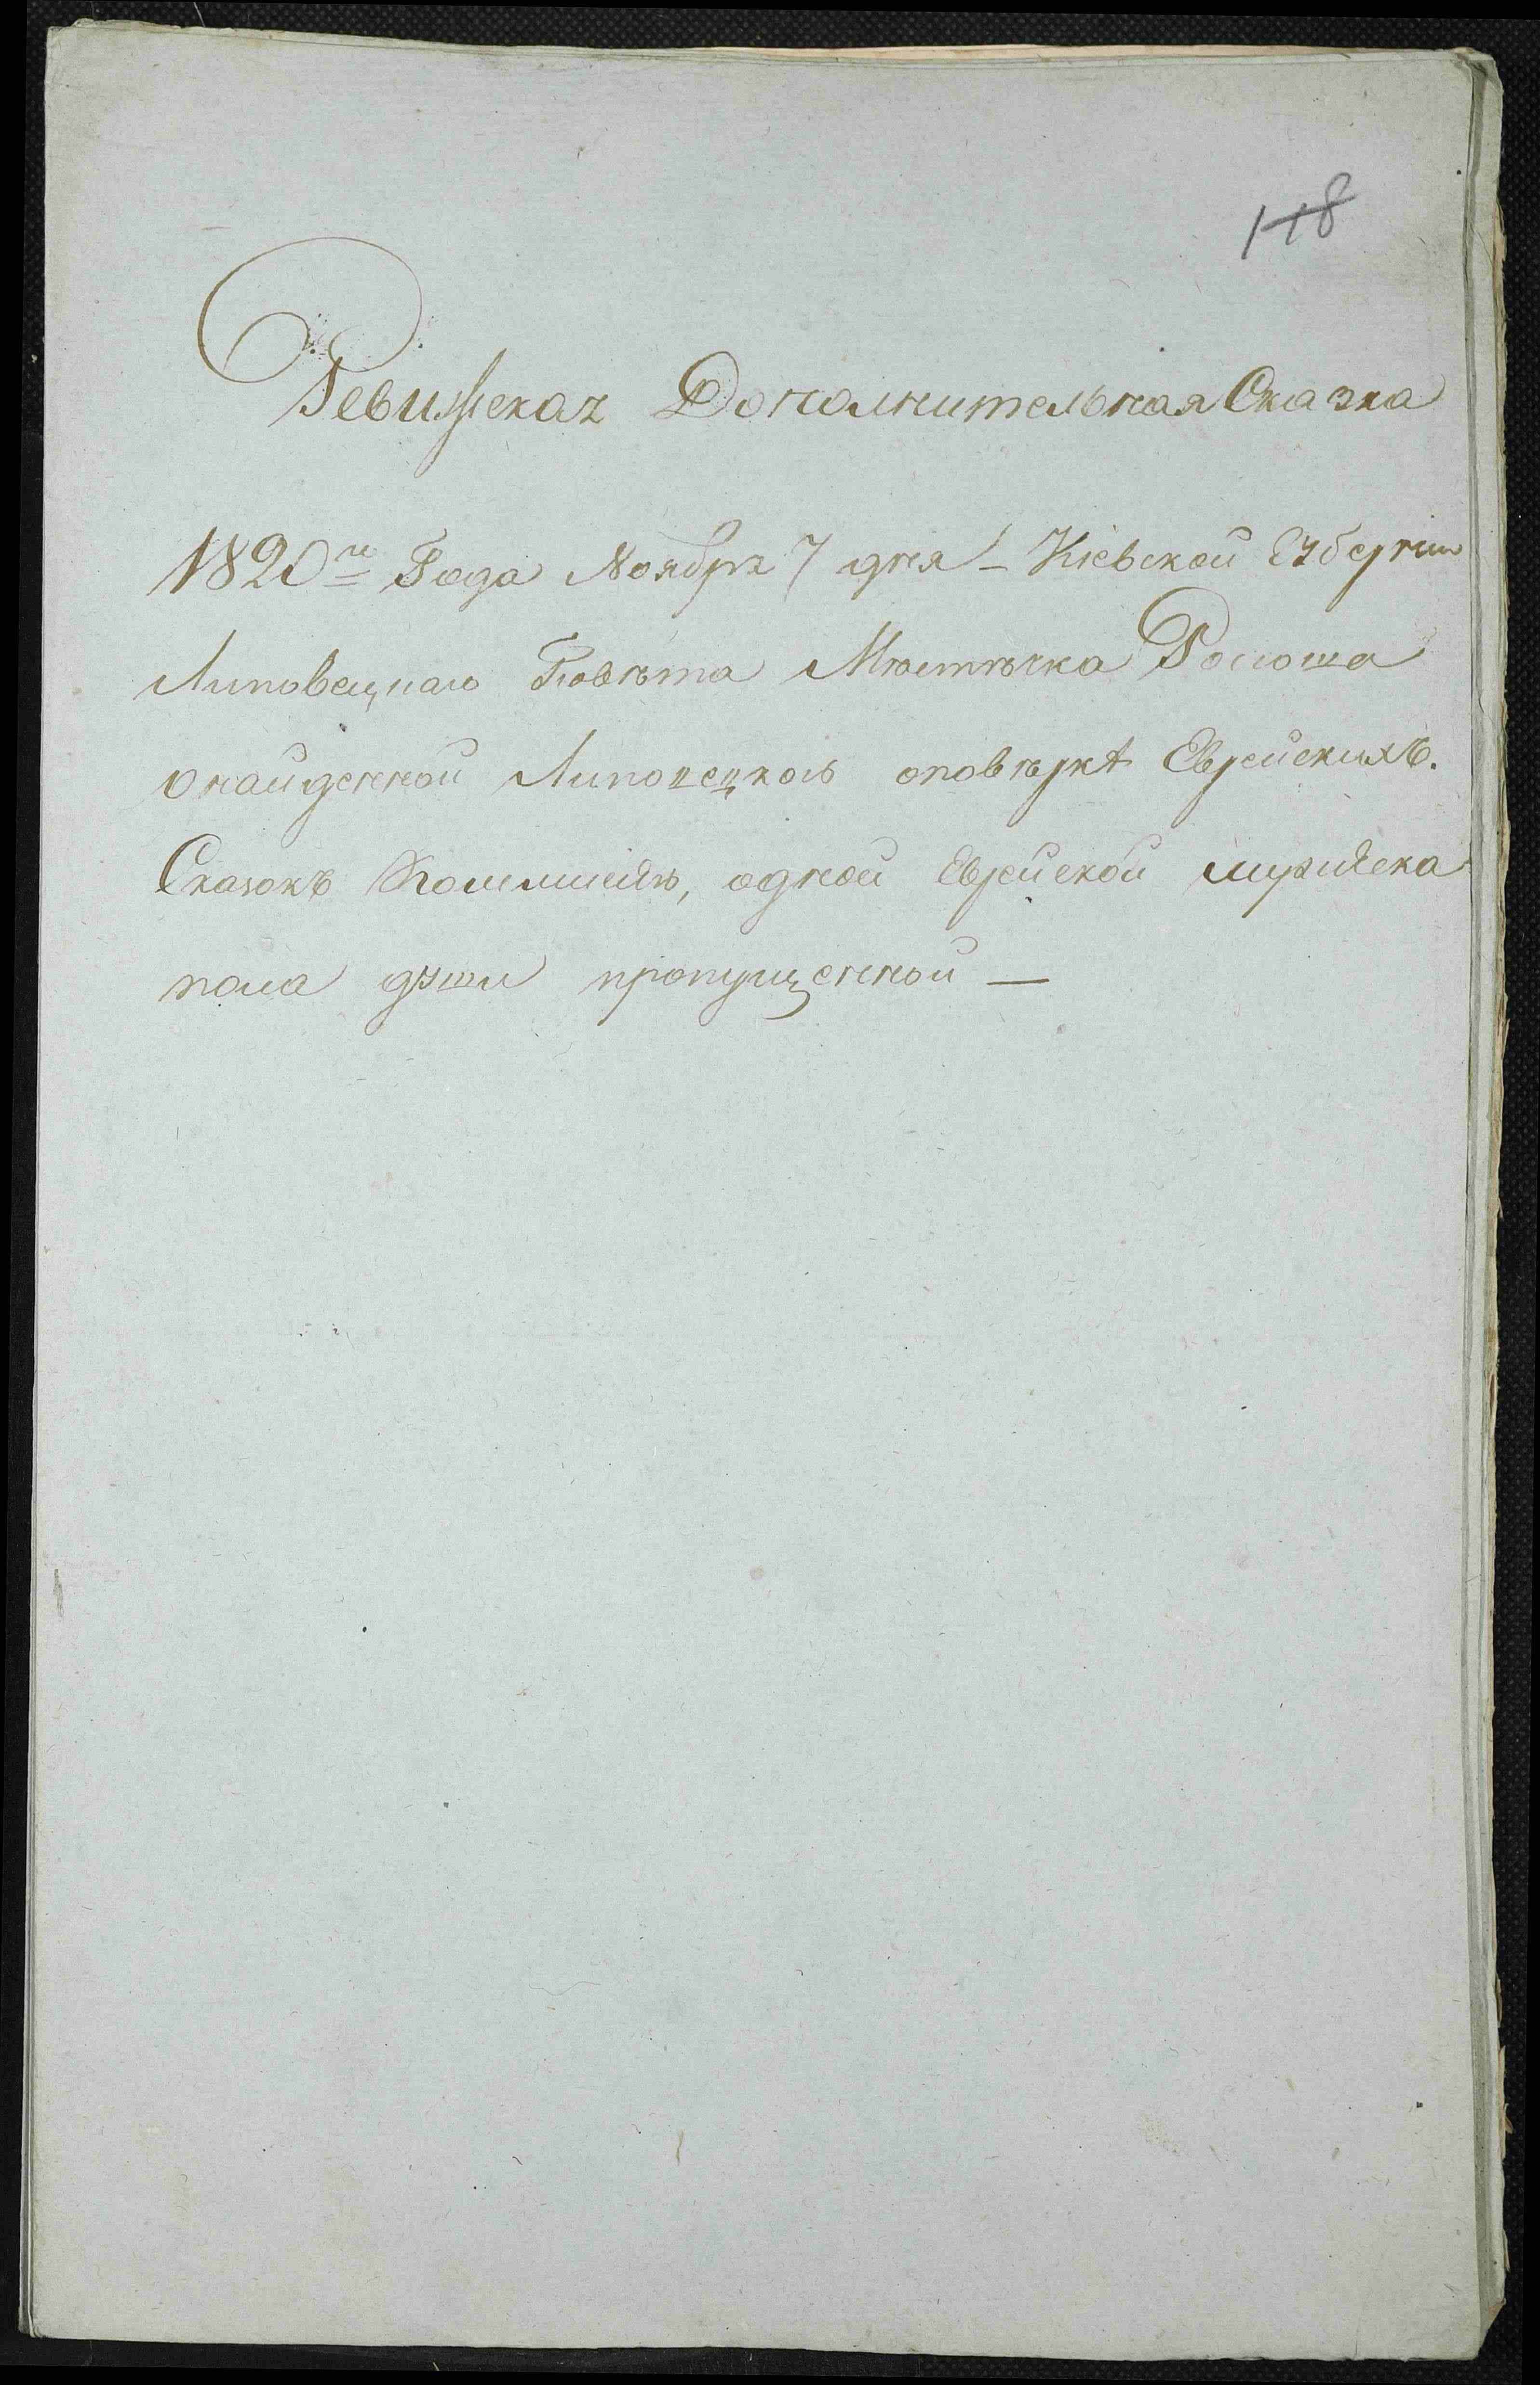 118
Ревижская Дополнительная Сказка
1820го Года Ноября 7 дня – Кіевской Губерніи
Липовецкаго Повѣта Мѣстѣчка Росоша
о найденной Липовецкою оповѣркѣ Еврейскихъ.
Сказокъ Комисіею, одной Еврейской мужеска
пола души пропущенной —